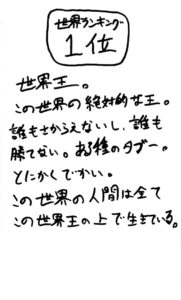 世界ランキング
1位
世界王。
この世界の絶対的な王。
誰もさからえないし、誰も
勝てない。ある種のタブー。
とにかくでかい。
この世界の人間は全て
この世界王の上で生きている。